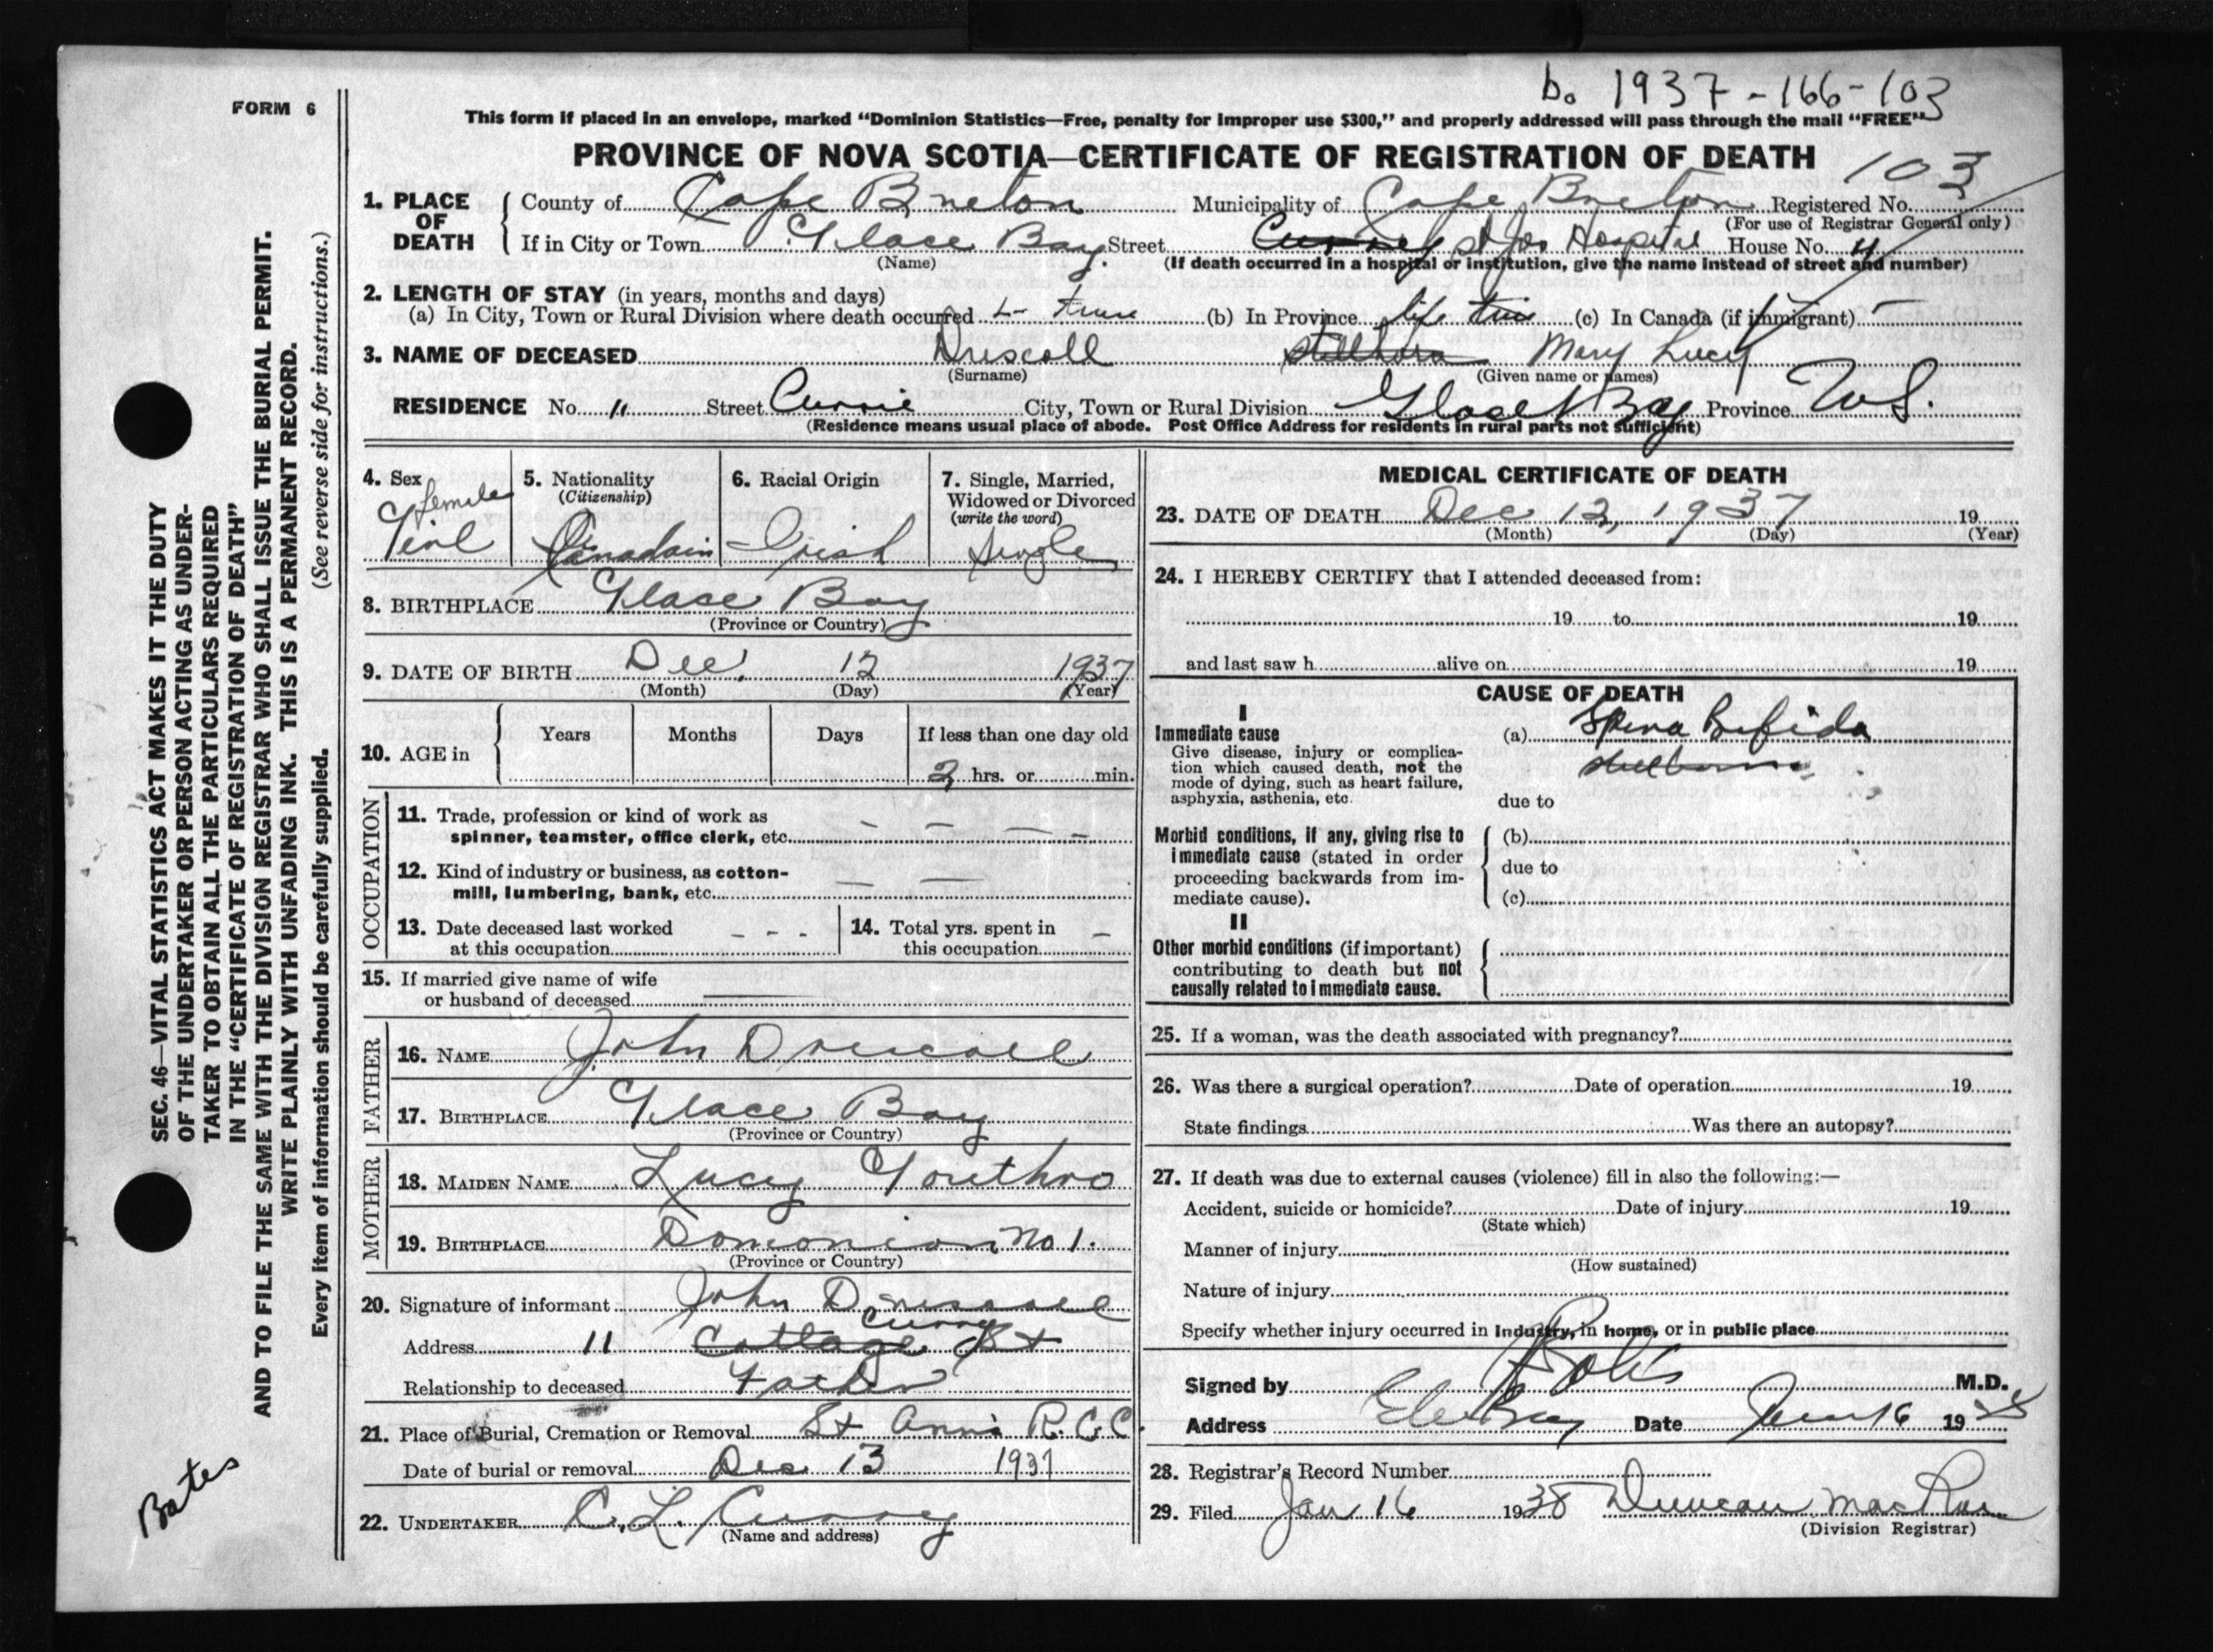 b. 1937-166-103
FORM 6
This form if placed in an envelope, marked "Dominion Statistics—Free, penalty for improper use $300," and properly addressed will pass through the mail "FREE"
PROVINCE OF NOVA SCOTIA—CERTIFICATE OF REGISTRATION OF DEATH
103
1. PLACE OF DEATH
County of Cape Breton Municipality of Cape Breton Registered No.
(For use of Registrar General only)
If in City or Town Glace Bay. Street Currey St Jos Hospital House No. 11
(Name) (If death occurred in a hospital or institution, give the name instead of street and number)
2. LENGTH OF STAY (in years, months and days)
(a) In City, Town or Rural Division where death occurred L- time (b) In Province life time (c) In Canada (if immigrant) -
3. NAME OF DECEASED Driscoll Stillborn Mary Lucy
(Surname) (Given name or names)
RESIDENCE No. 11 Street Currie City, Town or Rural Division Glace Bay Province N.S.
(Residence means usual place of abode. Post Office Address for residents in rural parts not sufficient)
4. Sex female Girl
5. Nationality (Citizenship) Canadain
6. Racial Origin Irish
7. Single, Married, Widowed or Divorced (write the word) Single
8. BIRTHPLACE Glace Bay
(Province or Country)
9. DATE OF BIRTH Dec. 12 1937
(Month) (Day) (Year)
10. AGE in Years Months Days If less than one day old
2 hrs. or min.
OCCUPATION
11. Trade, profession or kind of work as
spinner, teamster, office clerk, etc. — — — —
12. Kind of industry or business, as cotton-
mill, lumbering, bank, etc. — —
13. Date deceased last worked
at this occupation - - -
14. Total yrs. spent in
this occupation -
15. If married give name of wife
or husband of deceased ——
FATHER
16. NAME John Driscoll
17. BIRTHPLACE Glace Bay
(Province or Country)
MOTHER
18. MAIDEN NAME Lucy Youthro
19. BIRTHPLACE Domonion No 1.
(Province or Country)
20. Signature of informant John Driscoll
Currey
Address 11 Cottage St
Relationship to deceased Father
21. Place of Burial, Cremation or Removal St Ann's R.C.C.
Date of burial or removal Dec 13 1937
22. UNDERTAKER C. L. Currey
(Name and address)
MEDICAL CERTIFICATE OF DEATH
23. DATE OF DEATH Dec 12, 1937 19
(Month) (Day) (Year)
24. I HEREBY CERTIFY that I attended deceased from:
19 to 19
and last saw h alive on 19
CAUSE OF DEATH
I
Immediate cause
Give disease, injury or complica-
tion which caused death, not the
mode of dying, such as heart failure,
asphyxia, asthenia, etc.
(a) Spina Bifida
stillborn
due to
Morbid conditions, if any, giving rise to
immediate cause (stated in order
proceeding backwards from im-
mediate cause).
(b)
due to
(c)
II
Other morbid conditions (if important)
contributing to death but not
causally related to immediate cause.
25. If a woman, was the death associated with pregnancy?
26. Was there a surgical operation? Date of operation 19
State findings Was there an autopsy?
27. If death was due to external causes (violence) fill in also the following:—
Accident, suicide or homicide? Date of injury 19
(State which)
Manner of injury
(How sustained)
Nature of injury
Specify whether injury occurred in Industry, in home, or in public place
Signed by M.D.
Address Date 16 19
28. Registrar's Record Number
29. Filed Jan 16 1938 Duncan
(Division Registrar)
SEC. 46—VITAL STATISTICS ACT MAKES IT THE DUTY
OF THE UNDERTAKER OR PERSON ACTING AS UNDER-
TAKER TO OBTAIN ALL THE PARTICULARS REQUIRED
IN THE "CERTIFICATE OF REGISTRATION OF DEATH"
AND TO FILE THE SAME WITH THE DIVISION REGISTRAR WHO SHALL ISSUE THE BURIAL PERMIT.
WRITE PLAINLY WITH UNFADING INK. THIS IS A PERMANENT RECORD.
Every item of information should be carefully supplied. (See reverse side for instructions.)
Bates